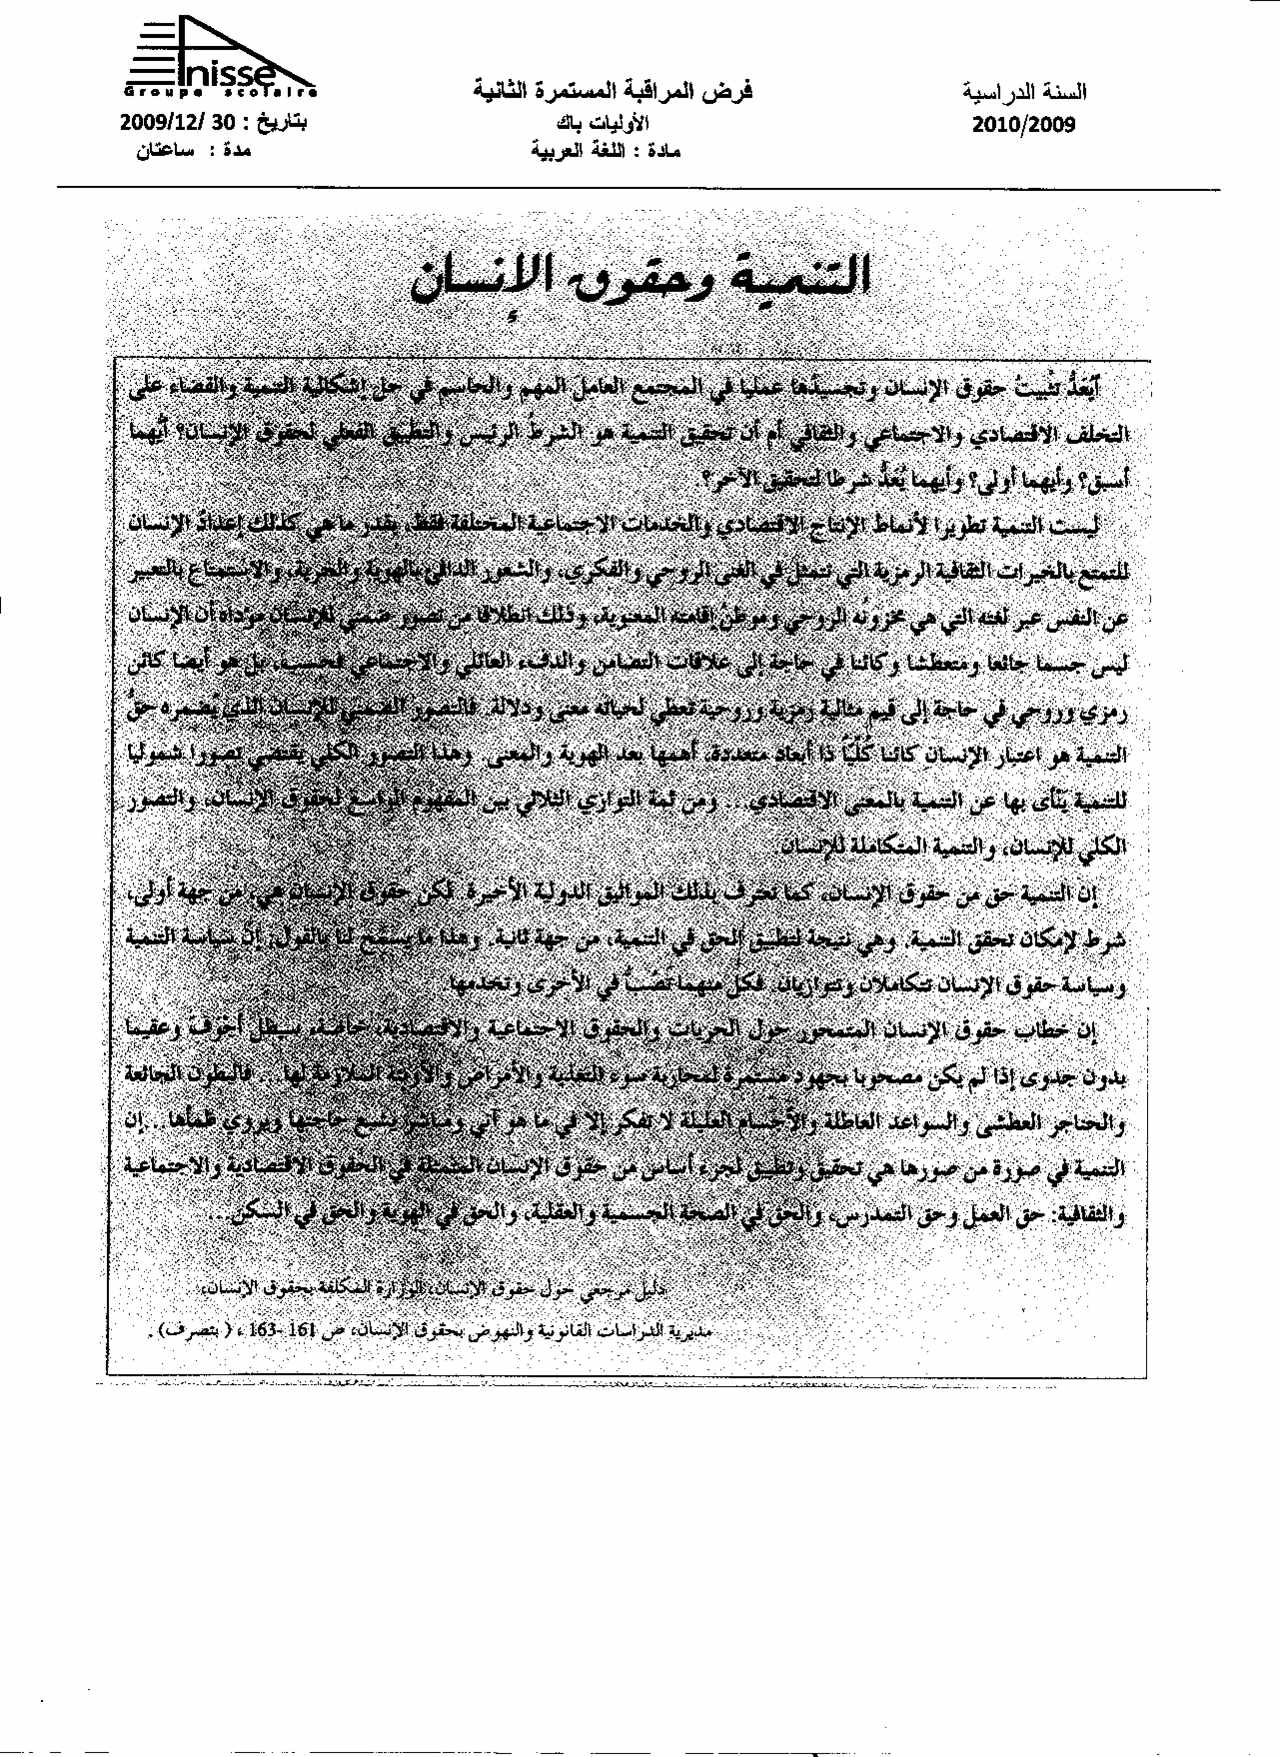 Anisse
Groupe scolaire
السنة الدراسية
2010/2009
فرض المراقبة المستمرة الثانية
الأوليات باك
مادة : اللغة العربية
بتاريخ : 30 /2009/12
مدة : ساعتان
التنمية وحقوق الإنسان
أيُعَدُّ تثبيتُ حقوق الإنسان وتجسيدُها عمليا في المجتمع العامل المهم والحاسم في حل إشكالية التنمية والقضاء على
التخلف الاقتصادي والاجتماعي والثقافي أم أن تحقيق التنمية هو الشرط الرئيس والتطبيق الفعلي لحقوق الإنسان؟ أيُّهما
أسبق؟ وأيهما أولى؟ وأيهما يُعَدُّ شرطا لتحقيق الآخر؟
ليست التنمية تطويرا لأنماط الإنتاج الاقتصادي والخدمات الاجتماعية المختلفة فقط، بقدر ما هي كذلك إعدادُ الإنسان
للتمتع بالخيرات الثقافية الرمزية التي تتمثل في الغنى الروحي والفكري، والشعور الذاتي بالهوية والحرية، والاستمتاع بالتعبير
عن النفس عبر لغته التي هي مخزونُه الروحي وموطنُ إقامته المعنوية، وذلك انطلاقا من تصور ضمني للإنسان مؤداه أن الإنسان
ليس جسما جائعا ومتعطشا وكائنا في حاجة إلى علاقات التضامن والدفء العائلي والاجتماعي فحسب، بل هو أيضا كائن
رمزي وروحي في حاجة إلى قيم مثالية رمزية وروحية تعطي لحياته معنى ودلالة. فالتصور الضمني للإنسان الذي يُضمره حقُّ
التنمية هو اعتبار الإنسان كائنا كُلِّيّاً ذا أبعاد متعددة، أهمها بعد الهوية والمعنى. وهذا التصور الكلي يقتضي تصورا شموليا
للتنمية يَنْأى بها عن التنمية بالمعنى الاقتصادي... ومن ثمة التوازي الثلاثي بين المفهوم الواسع لحقوق الإنسان، والتصور
الكلي للإنسان، والتنمية المتكاملة للإنسان.
إن التنمية حق من حقوق الإنسان، كما تعترف بذلك المواثيق الدولية الأخيرة. لكن حقوق الإنسان هي، من جهة أولى،
شرط لإمكان تحقق التنمية، وهي نتيجة لتطبيق الحق في التنمية، من جهة ثانية. وهذا ما يسمح لنا بالقول: إنَّ سياسة التنمية
وسياسة حقوق الإنسان تتكاملان وتتوازيان. فكلٌّ منهما تَصُبُّ في الأخرى وتخدمها.
إن خطاب حقوق الإنسان المتمحور حول الحريات والحقوق الاجتماعية والاقتصادية، خاصة، سيظل أجوفَ وعقيما
بدون جدوى إذا لم يكن مصحوبا بجهود مستمرة لمحاربة سوء التغذية والأمراض والأوبئة الملازمة لها... فالبطون الجائعة
والحناجر العطشى والسواعد العاطلة والأجسام العليلة لا تفكر إلا في ما هو آني ومباشر يشبع حاجتها ويروي ظمأها...إن
التنمية في صورة من صورها هي تحقيق وتطبيق لجزء أساس من حقوق الإنسان المتمثلة في الحقوق الاقتصادية والاجتماعية
والثقافية: حق العمل وحق التمدرس، والحق في الصحة الجسمية والعقلية، والحق في الهوية والحق في السكن...
دليل مرجعي حول حقوق الإنسان، الوزارة المكلفة بحقوق الإنسان،
مديرية الدراسات القانونية والنهوض بحقوق الإنسان، ص 161 -163 ، ( بتصرف) .